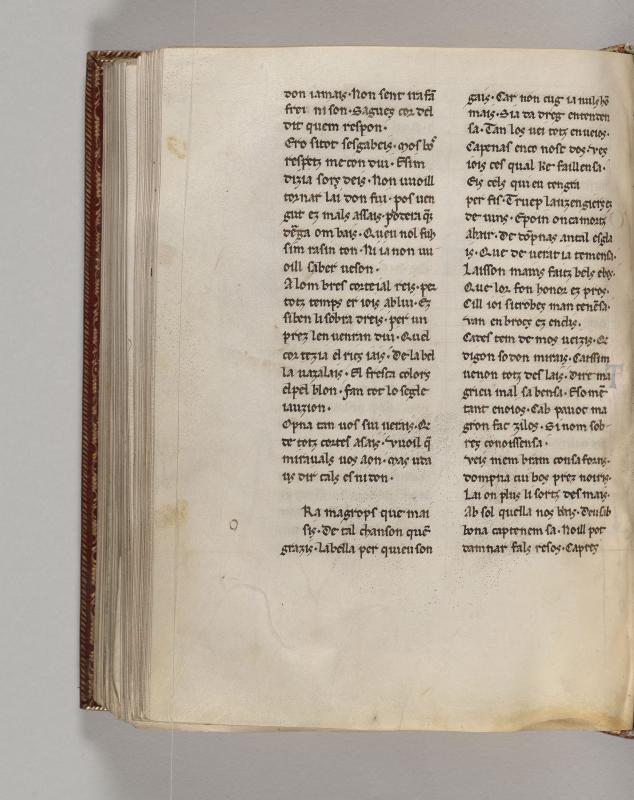 don iamais·Non sent ira fā
frei ni son·Sagues cor del
dit quem respon·
Ero sitot sesgabeis·mos bō
respetz me ton dui·Esim
dizia sors deis·Non uuoill
tornar lai don fui·pos uen
gut ez mals assais·potera q̄
dēga om bais·Queu nol fuh
sim rasin ton·Ni ia non uu
oill saber ueson·
A lom bres corteial reis·per
totz temps er iois ab lui·Ez
si ben li sobra dreis·per un
prez len uenran dui·Quel
cortezia el rics iais·De la bel
la uazalais·El fresca colors
el pel blon·fan tot lo segle
iauzion·
Opna tan uos sui uerais·Q
de totz cortes asais·Vuoil q̄
mirauals uos aon·mas uda
us dir tals es ni don·
Ra magrops que mai
sis·De tal chanson quē
grazis·La bella per qui eu son
gais·Car non cug ia nuls hō
mais·Sia da dreg entenden
sa·Tan los uei totz enueios·
Capenas enco nosc dos·Ves
iois ces qual ke faillensa·
Eis cels qui eu tengra
per fis·Truep lauzengiers
de uuns·E poin on camortz
abair·De dōpnas antal esgla
is·Que de uerat ia temensa·
Laisson mains faitz bels ebos·
Que lor fon honor ez pros·
Cill ioi si trobes man tenēsa·
Van en broes ez enclis·
Cades tem de mos ueizis·Q
digon so don mirais·Carsim
uenon totz des lais·Dire ma
grieu mal sa bensa·Eso mē
tant enoios·Cab pauoc ma
gron fac zilos·Si nom sob
res conoissensa·
Veis mem bram con sa fozis·
dompna cui bos prez noiris·
Lai on plus li sortz des mais·
Ab sol quella nos biais·Deu sib
bona captenem sa·Noill pot
damnar fals resos·Caprez